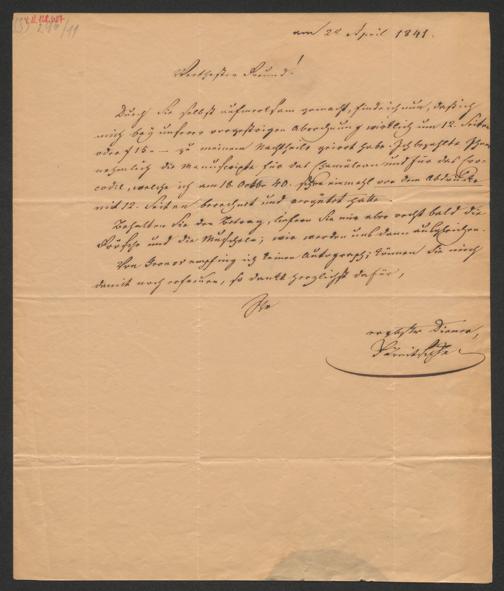 am 22 April 1841.
Werthester Freund!
Durch Sie selbst aufmerksam gemacht, finde ich nun, daß ich
mich bey unserer vorgestrigen Abrechnung wirklich um 12. Seiten
oder f 15 – zu meinem Nachtheile geirrt habe. Ich bezahlte Ihnen
nehmlich die Manuscripte für das Chamäleon und für das Cro-
codil, welche ich am 18 Octbr 40. schon einmahl vor dem Abdrucke
mit 12. Seiten berechnet und vergütet hatte.
Behalten Sie den Betrag, liefern Sie mir aber recht bald die
Frösche und die Muscheln; wir werden uns dann ausgleichen.
Von empfing ich keinen Autograph; können Sie mich
damit noch erfreuen, so dankt herzlichst dafür,
Ihr
ergebster Diener,